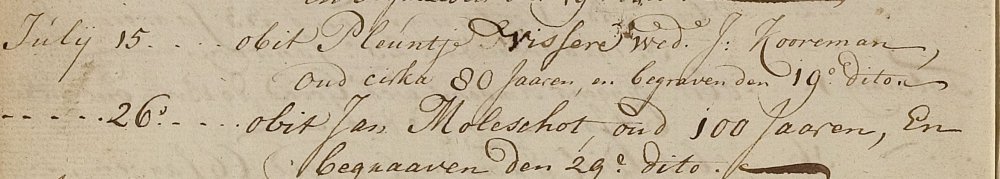 Julij 15. . . . obit Pleuntje Vissers wed.e J: Kooreman,
oud cirka 80 Jaaren, en begraven den 19.e dito.
- - - . . 26.' - . . . obit Jan Moleschot, oud 100 Jaaren, En
begraaven den 29.e dito.